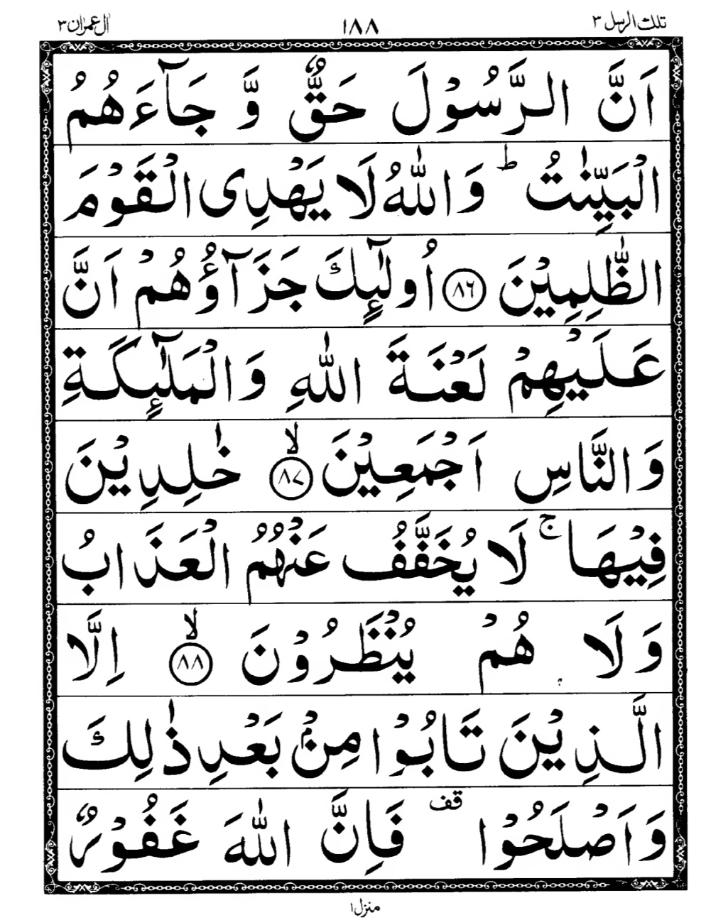 تلك الرسل ٣ ١٨٨ اٰل عمران ٣
اَنَّ الرَّسُوْلَ حَقٌّ وَّ جَآءَهُمُ
الْبَيِّنٰتُ ؕ وَاللّٰهُ لَا يَهْدِى الْقَوْمَ
الظّٰلِمِيْنَ ۝٨٦ اُولٰٓئِكَ جَزَآؤُهُمْ اَنَّ
عَلَيْهِمْ لَعْنَةَ اللّٰهِ وَالْمَلٰٓئِكَةِ
وَالنَّاسِ اَجْمَعِيْنَ ۝٨٧ۙ خٰلِدِيْنَ
فِيْهَا ۚ لَا يُخَفَّفُ عَنْهُمُ الْعَذَابُ
وَلَا هُمْ يُنْظَرُوْنَ ۝٨٨ۙ اِلَّا
الَّذِيْنَ تَابُوْا مِنْۢ بَعْدِ ذٰلِكَ
وَاَصْلَحُوْا قف فَاِنَّ اللّٰهَ غَفُوْرٌ
منزل ١